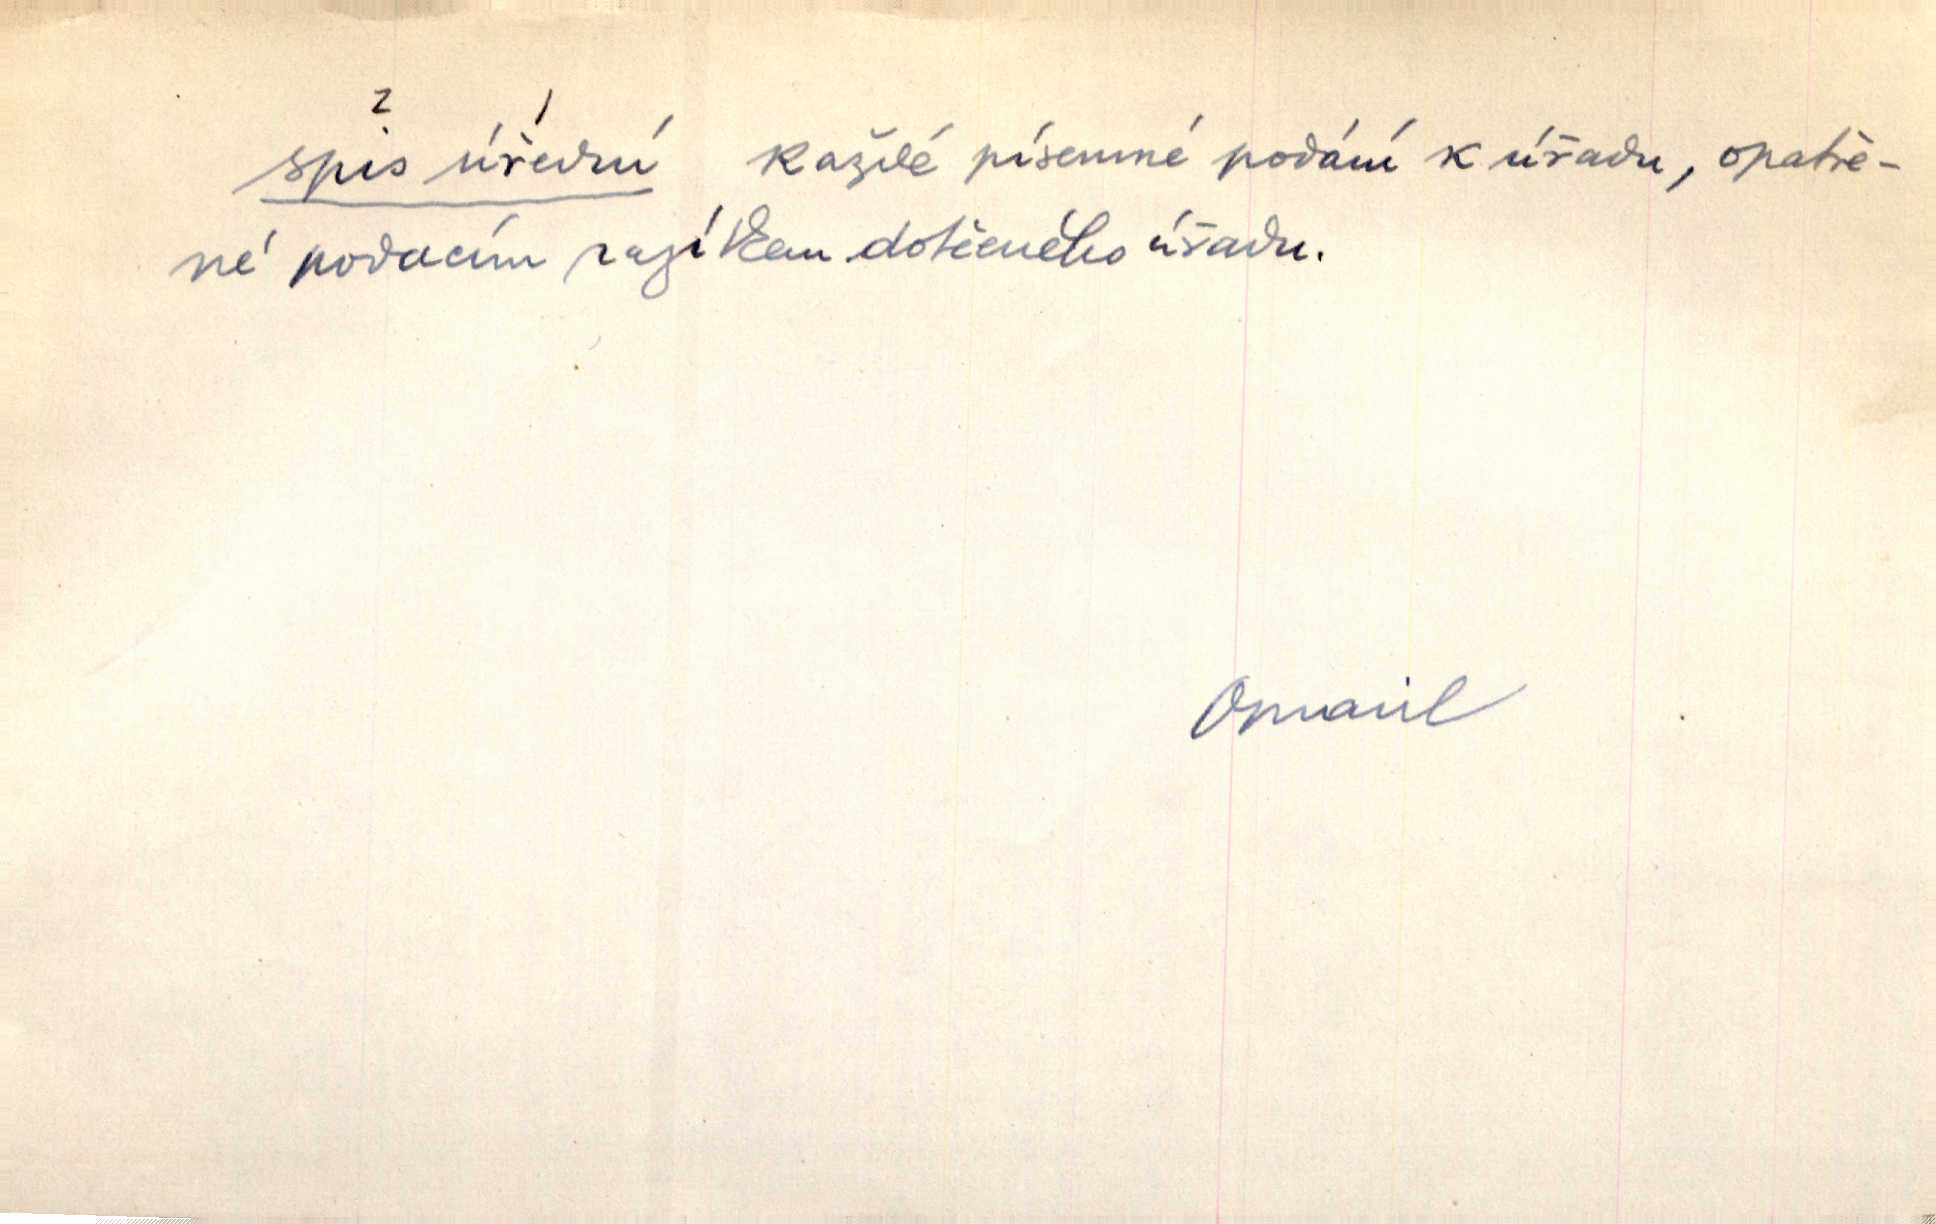 2 1
spis úřední každé písemné podání k úřadu, opatře-
né podacím razítkem dotčeného úřadu.